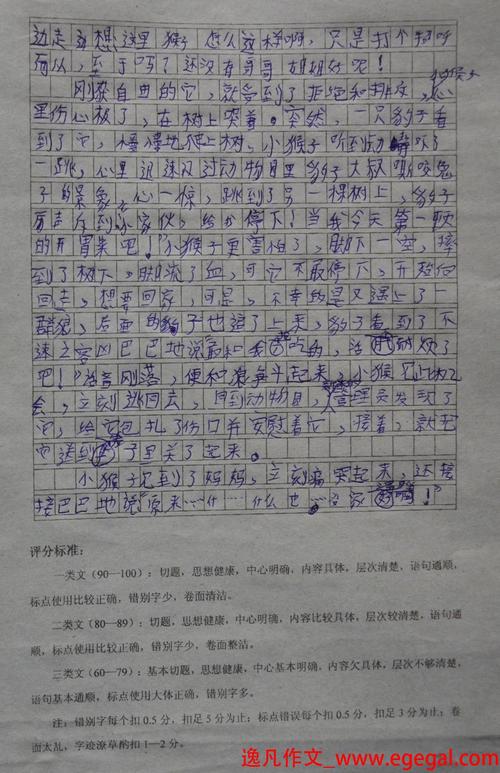 边走边想这里猴子怎么这样啊,只是打个招呼
而以,至于吗?还没有哥哥姐姐好呢!
刚获自由的它,就受到了拒绝和排放,心
里伤心极了,在树上哭着。突然,一只豹子看
到了它,悄悄地爬上树,小猴子听到动静吓了
一跳,心里迅速闪过动物园里豹子大叔嘶咬兔
子的景象,心一惊,跳到了另一棵树上,豹子
厉声斥到小家伙,给我停下!当我今天第一顿
的开胃菜吧!"小猴子更害怕了,脚下一空,摔
到了树下。脚流了血,可它不敢停下,开始往
回走,想要回家,可是,不幸的是又遇上了一
群狼,后面的豹子也追了上来,豹子看到了不
速之客凶巴巴地说敢和我抢吃的,活得不耐烦了
吧!"话音刚落,便和狼争斗起来,小猴见机
会,立刻逃回去,回到动物园,管理员发现了
它,给它包扎了伤口并安慰着它,接着,就把
它送到笼子里关了起来。
小猴子见到了妈妈,立刻痛哭起来,还接
接巴巴地说"原来……什……什么也……没家好啊!"
评分标准:
一类文(90—100):切题,思想健康,中心明确,内容具体,层次清楚,语句通顺,
标点使用比较正确,错别字少,卷面清洁。
二类文(80—89):切题,思想健康,中心明确,内容比较具体,层次较清楚,语句通
顺,标点使用比较正确,错别字少,卷面整洁。
三类文(60—79):基本切题,思想健康,中心基本明确,内容欠具体,层次不够清楚,
语句基本通顺,标点使用大体正确,错别字多。
注:错别字每个扣0.5分,扣足5分为止;标点错误每个扣0.5分,扣足3分为止;卷
面太乱,字迹潦草酌扣1—2分。
逸凡作文_www.egegal.com